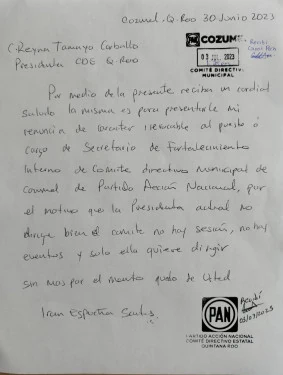 Cozumel Q. Roo 30 Junio 2023
C. Reyna Tamayo Carballo
Presidenta CDE Q Roo
COZUMEL
Recibi
03 JUL 2023
COMITÉ DIRECTIVO
MUNICIPAL
Por medio de la presente reciban un cordial
saludo la misma es para presentarle mi
renuncia de caracter irrevocable al puesto ó
cargo de Secretario de fortalecimiento
Interno de Comite directivo Municipal de
Cozumel de Partido Acción Nacional, por
el motivo que la Presidenta actual no
dirige bien el comite no hay sesión, no hay
eventos y solo ella quiere dirigir
sin mas por el momento quedo de Usted
Recibí
PAN
03/07/2023
PARTIDO ACCIÓN NACIONAL
COMITÉ DIRECTIVO ESTATAL
QUINTANA ROO